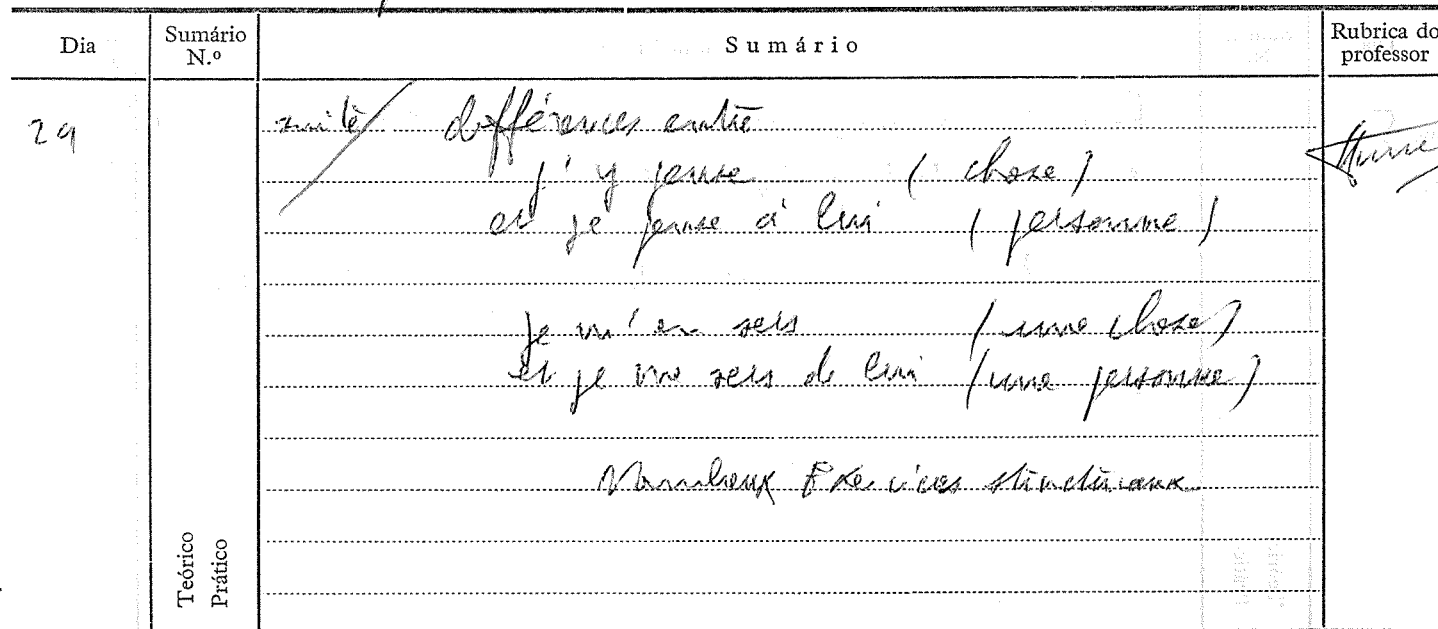 Dia
Sumário N.º
Sumário
Rubrica do professor
29
suite/ différences entre
j'y pense (chose)
et je pense à lui (personne)
je m'en sers (une chose)
et je me sers de lui (une personne)
Nombreux Exercices structuraux
Teórico
Prático